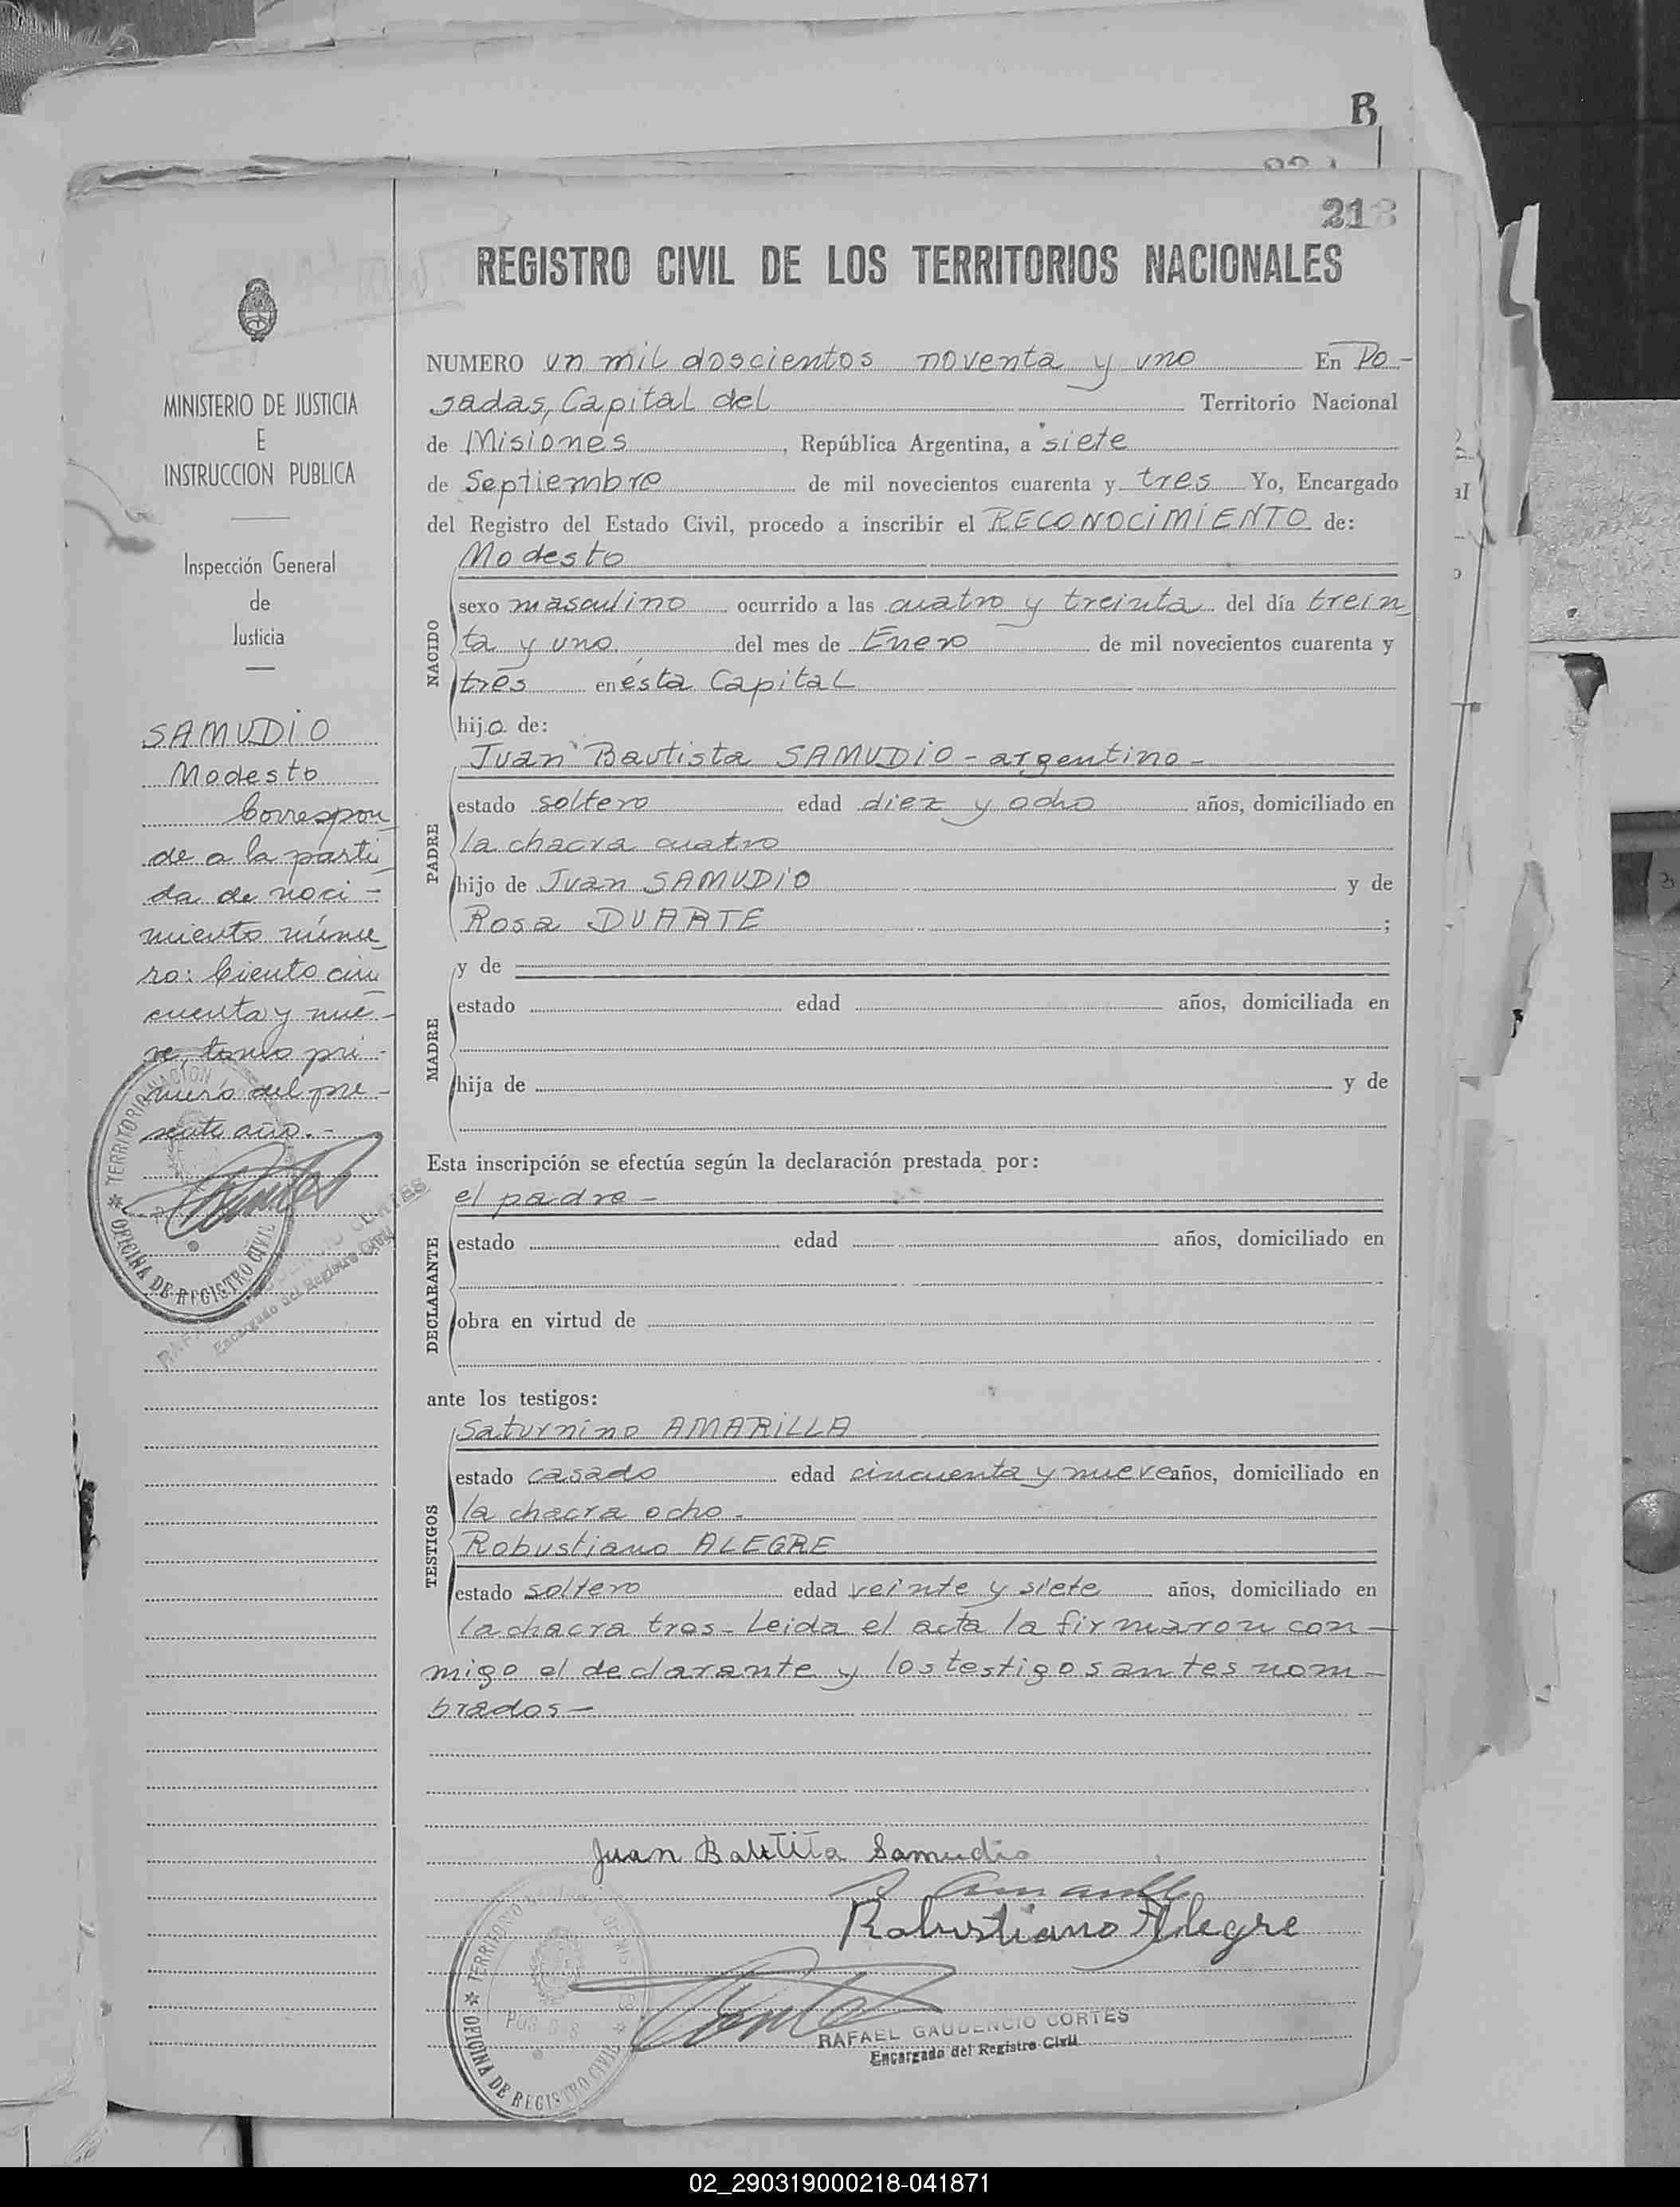 B
218
REGISTRO CIVIL DE LOS TERRITORIOS NACIONALES
MINISTERIO DE JUSTICIA
E
INSTRUCCION PUBLICA
Inspección General
de
Justicia
SAMUDIO
Modesto
Correspon
de a la parti
da de naci-
miento núme
ro: Ciento cin
cuenta y nue-
ve, tomo pri-
mero del pre-
sente año.-
TERRITORIO NACION
OFICINA DE REGISTRO CIVIL
Encargado del Registro Civil
NUMERO un mil doscientos noventa y uno En Po-
sadas, Capital del Territorio Nacional
de Misiones, República Argentina, a siete
de Septiembre de mil novecientos cuarenta y tres Yo, Encargado
del Registro del Estado Civil, procedo a inscribir el RECONOCIMIENTO de:
NACIDO
Modesto
sexo masculino ocurrido a las cuatro y treinta del día trein
ta y uno del mes de Enero de mil novecientos cuarenta y
tres en ésta Capital
hijo de:
PADRE
Juan Bautista SAMUDIO - argentino -
estado soltero edad diez y ocho años, domiciliado en
la chacra cuatro
hijo de Juan SAMUDIO y de
Rosa DUARTE ;
MADRE
y de
estado edad años, domiciliada en
hija de y de
Esta inscripción se efectúa según la declaración prestada por:
DECLARANTE
el padre -
estado edad años, domiciliado en
obra en virtud de
ante los testigos:
TESTIGOS
Saturnino AMARILLA
estado casado edad cincuenta y nueve años, domiciliado en
la chacra ocho.
Robustiano ALEGRE
estado soltero edad veinte y siete años, domiciliado en
la chacra tres - Leida el acta la firmaron con-
migo el declarante y los testigos antes nom-
brados -
Juan Batitta Samudio
Robustiano Alegre
TERRITORIO
OFICINA DE REGISTRO CIVIL
RAFAEL GAUDENCIO CORTES
Encargado del Registro Civil
02_290319000218-041871